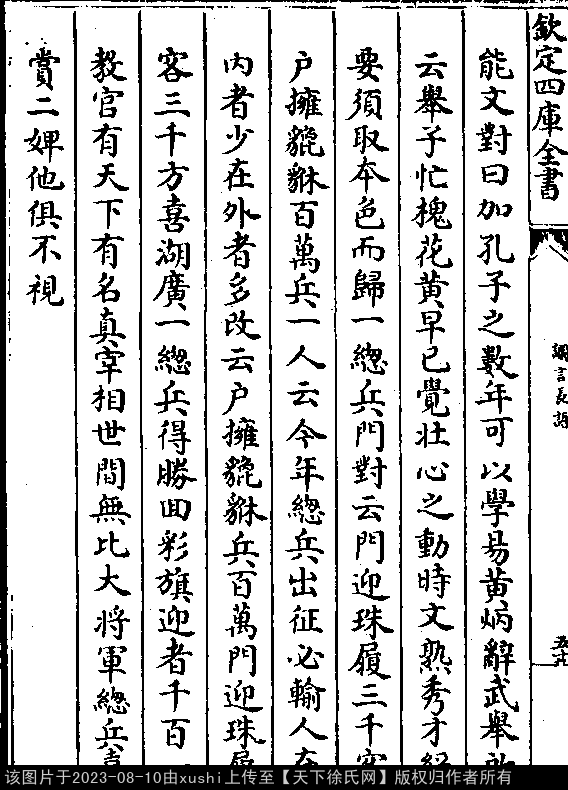 欽定四庫全書
能文對曰加孔子之數年可以學易黄炳辭武舉
云舉子忙槐花黄早已覺壯心之動時文熟秀才
要須取本色而歸一緫兵門對云門迎珠履三千
户擁貔貅百萬兵一人云今年緫兵出征必輸人
内者少在外者多改云户擁貔貅兵百萬門迎珠
客三千方喜湖廣一緫兵得勝回彩旗迎者千百
教官有天下有名真宰相世間無比大將軍緫兵
賞二婢他俱不視
该图片于2023-08-10由xushi上传至【天下徐氏网】版权归作者所有